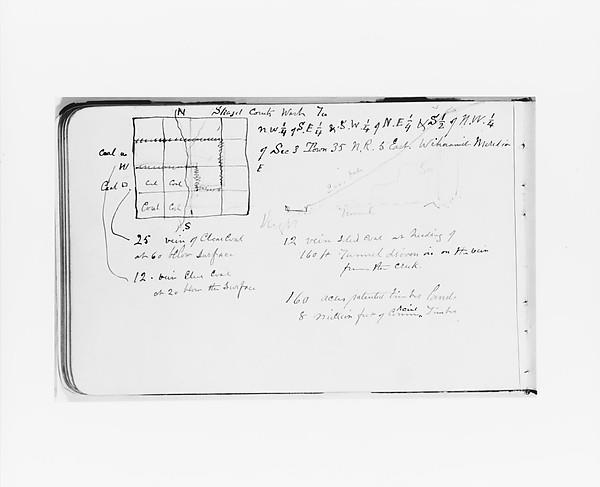 N
Skagit County Wash Ter
N.W. 1/4 of S.E 1/4 & S.W. 1/4 of N.E 1/4 & S 1/2 of N.W. 1/4
of Sec 3 Town 35 N.R. 6 East Wihamid Meredian
E
Coal
W
Coal
Col Col
Coal Col
S
Tunnel
25 vein of Clear Coal
at 60 below Surface
12 vein Clear Coal
at 20 below the Surface
12 vein Coal at heading of
160 ft Tunnel driven in on the vein
from the creek.
160 acres patented Timber Land
8 million feet of Timber